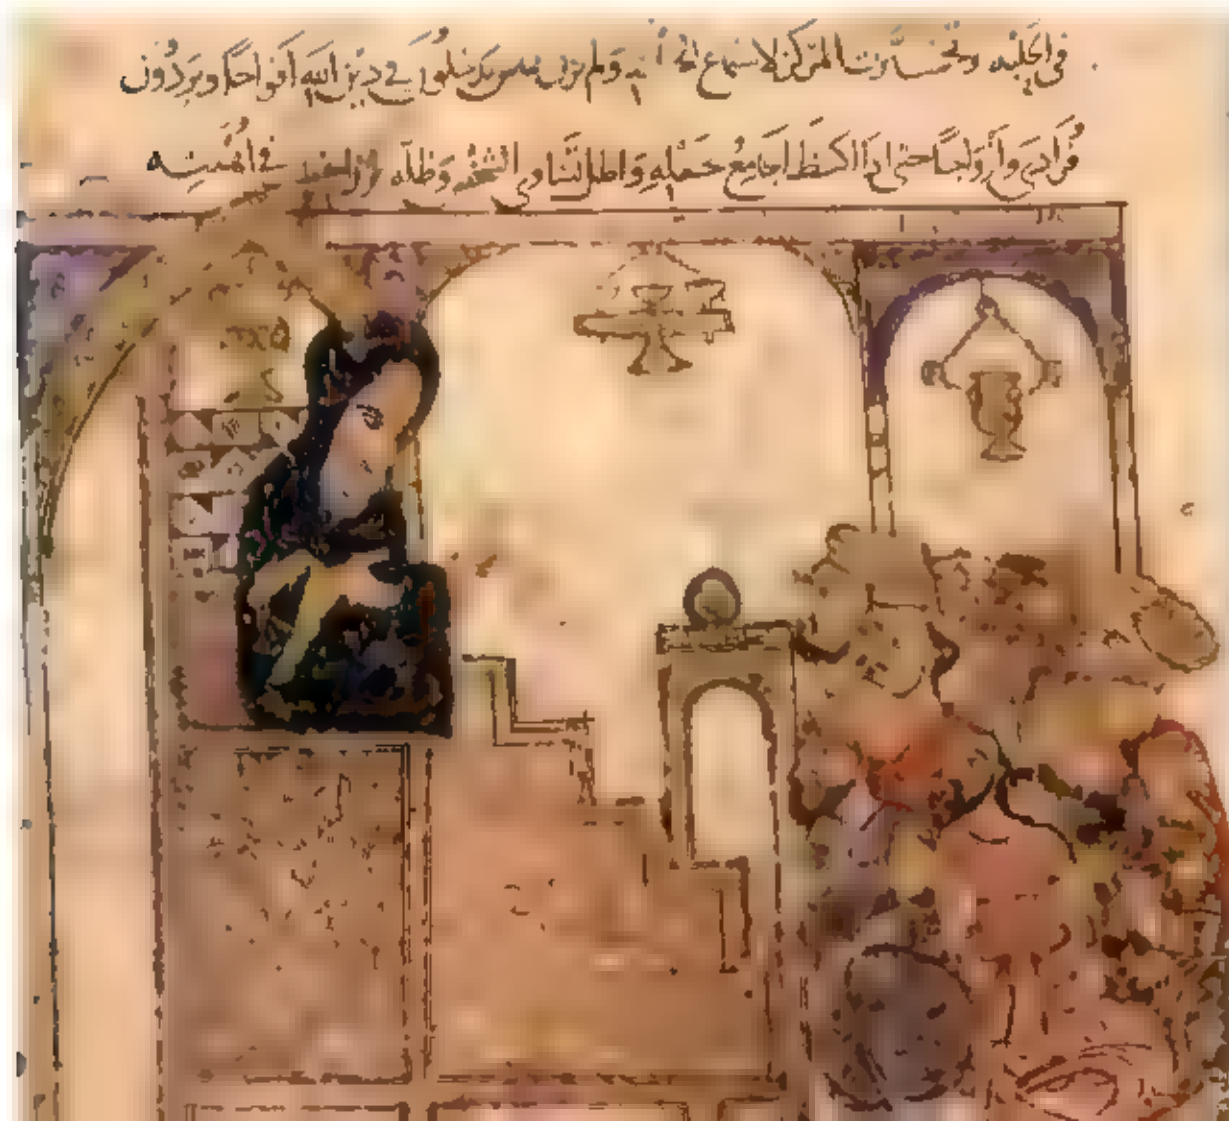 في الحلبه وتخيرت المركز لاستماع ولم يزل يدخلون في دين الله افواجا ويردون
فرادى وأزواجا حتى اذا اكتظ الجامع بحفله واظل التساوي الشخص وظله في اهبته